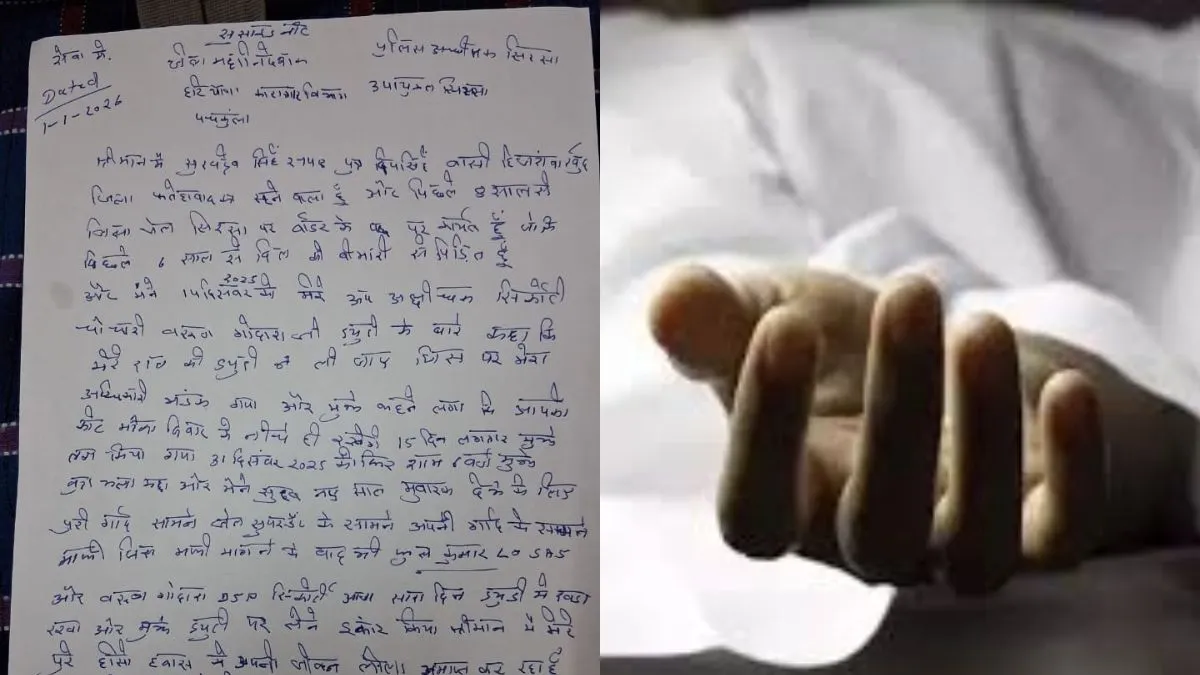 सुसाइड नोट
सेवा मे.
जेल महानिदेशक पुलिस अधीक्षक सिरसा
Dated
1-1-2026
हरियाणा कारागार विभाग उपायुक्त सिरसा
पंचकुला
श्रीमान मै सुखदेव सिंह पुत्र वासी
जिला फतेहाबाद का रहने वाला हूँ और पिछले 8 साल से
जिला जेल सिरसा पर वार्डर के पद पर हूँ जो कि
पिछले 6 साल से दिल की बीमारी से पिड़ित हूँ
2025
और मैने 14 दिसंबर को मेरे उप अधीक्षक सिक्योर्टी
वरुण गोदारा डयुटी के बारे कहा कि
मेरे रात की डयुटी न ली जाए जिस पर मेरा
अधिकारी भड़क गया और मुझे कहने लगा कि आपको
कोट मौका दिवार के नीचे ही रखेगे 15 दिन लगातार मुझे
तंग किया गया 31 दिसंबर 2025 को फिर शाम मुझे
बुरा भला कहा और मैने सुबह नए साल मुबारक देने के लिए
पुरी गार्द सामने जेल सुपरडैंट के सामने अपनी गार्द के सामने
माफी जिस माफी मागने के बाद भी कुमार LO SAS
और वरुण गोदारा DSP सिक्योर्टी सारा दिन डयुटी मे खड़ा
रखा और मुझे डयुटी पर लेने से इंकार किया श्रीमान मै मेरे
पुरे होसो हवास मे अपनी जीवन लीला समाप्त कर रहा हूँ